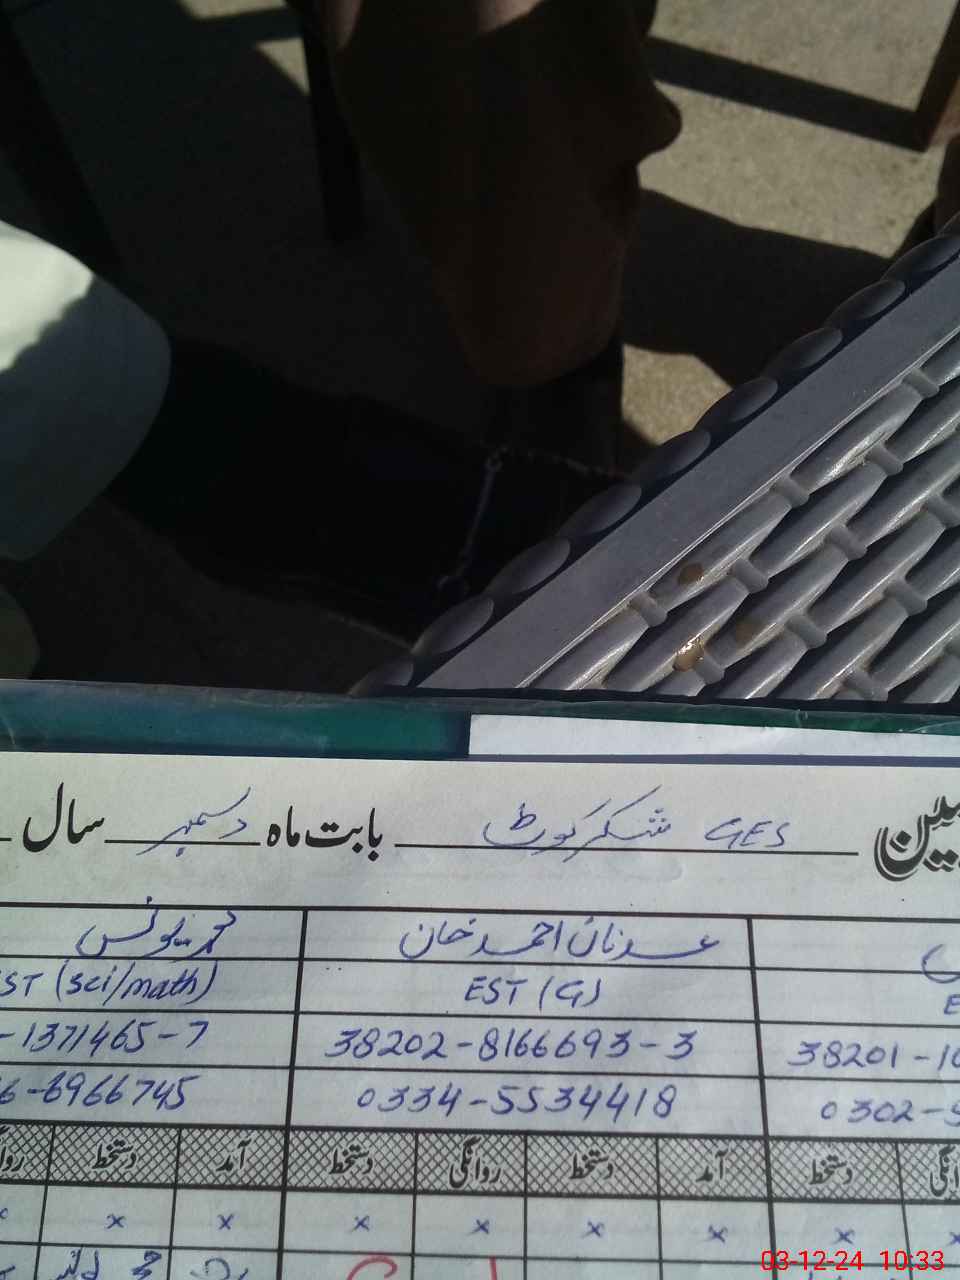 GES شکرکوٹ بابت ماہ دسمبر سال
عدنان احمد خان محمد یونس
EST (G) EST (sci/math)
38201-10 38202-8166693-3 -1371465-7
0302-5 0334-5534418 6-6966745
دستخط آمد دستخط روانگی دستخط آمد دستخط
x x x x x x x x
03-12-24 10:33